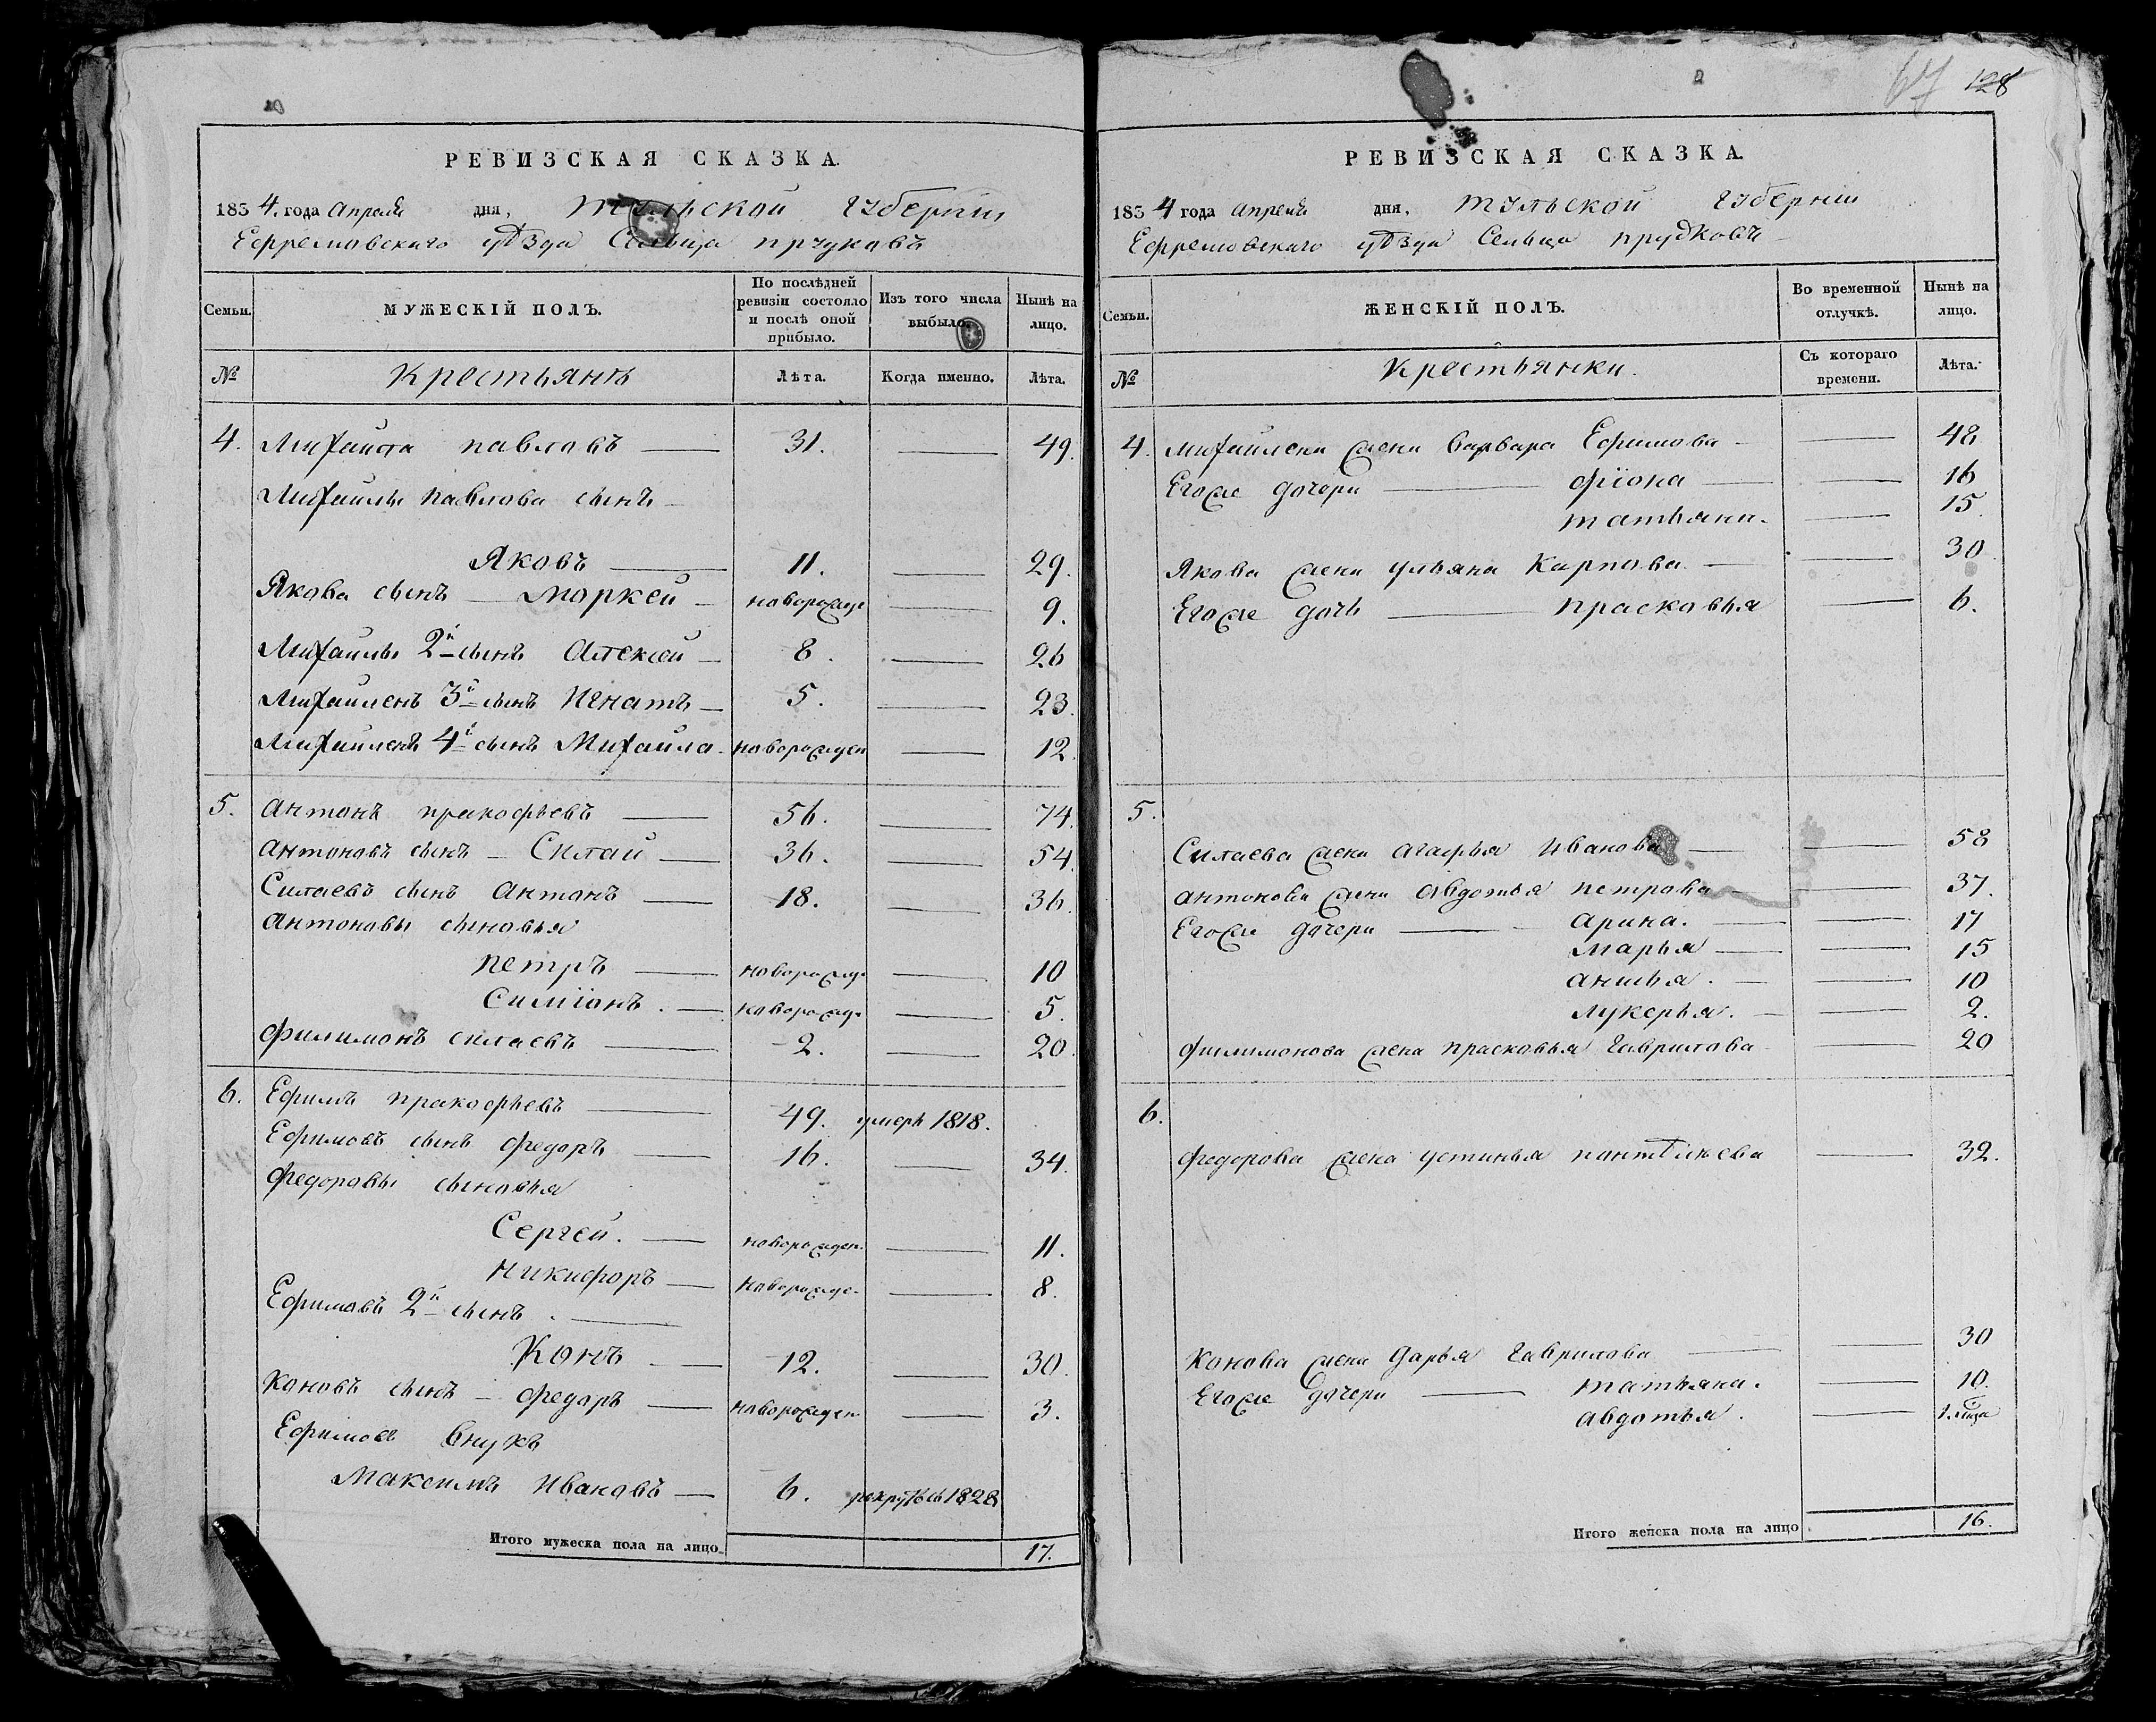 67 128
РЕВИЗСКАЯ СКАЗКА.
1834. года Апреля дня, Тульской Губерніи
Ефремовскаго уѣзда Сельца
Семьи. МУЖЕСКІЙ ПОЛЪ. По послѣдней ревизіи состояло и послѣ оной прибыло. Изъ того числа выбыло. Нынѣ на лицо.
№ Крестьянъ Лѣта. Когда именно. Лѣта.
4. Михайла павловъ 31. 49.
Михайлы павлова сынъ
Яковъ 11. 29.
Якова сынъ Маркей новорожде 9.
Михайлы 2й сынъ Алексей 8. 26
Михайленъ 3й сынъ Игнатъ 5. 23.
Михайленъ 4й сынъ Михайла новорожден 12
5. Антонъ пракофьевъ 56. 74.
Антоновъ сынъ Силай 36. 54
Силаевъ сынъ Антонъ 18. 36.
Антоновы сыновья
Петръ новорожде 10
Симіонъ. новорожде 5.
Филимонъ силаевъ 2. 20.
6. Ефимъ пракофьевъ 49. умеръ 1818.
Ефимовъ сынъ Федоръ 16. 34.
Федоравы сыновья
Сергей. новорожден. 11.
Никифоръ новорожде. 8.
Ефимовъ 2й сынъ.
Конъ 12. 30.
Коновъ сынъ Федоръ новорожден 3.
Ефимовъ внукъ
Максимъ Ивановъ 6. 1828
Итого мужеска пола на лицо 17.
РЕВИЗСКАЯ СКАЗКА.
1834 года Апреля дня, Тульской Губерніи
Ефремовскаго уѣзда Сельца прудковъ
Семьи. ЖЕНСКІЙ ПОЛЪ. Во временной отлучкѣ. Нынѣ на лицо.
№ Крестьянки. Съ котораго времени. Лѣта.
4. Михайлена жена Варвара Ефимова 48
Егоже дочери Фіона 16
Татьяна. 15.
Якова жена ульяна Карпова 30
Егоже дочь прасковья 6.
5.
Силаева жена Агафья Иванова 58
Антонова жена Авдотья петрова 37.
Егоже дочери Арина. 17
Марья 15
Анисья. 10
Лукерья. 2.
Филимонова жена прасковья Гаврилова 20
6.
Федорова жена устинья пантѣлѣева 32.
Конова жена Дарья Гаврилова 30
Егоже дочери Татьяна. 10.
Авдотья.
Итого женска пола на лицо 16.